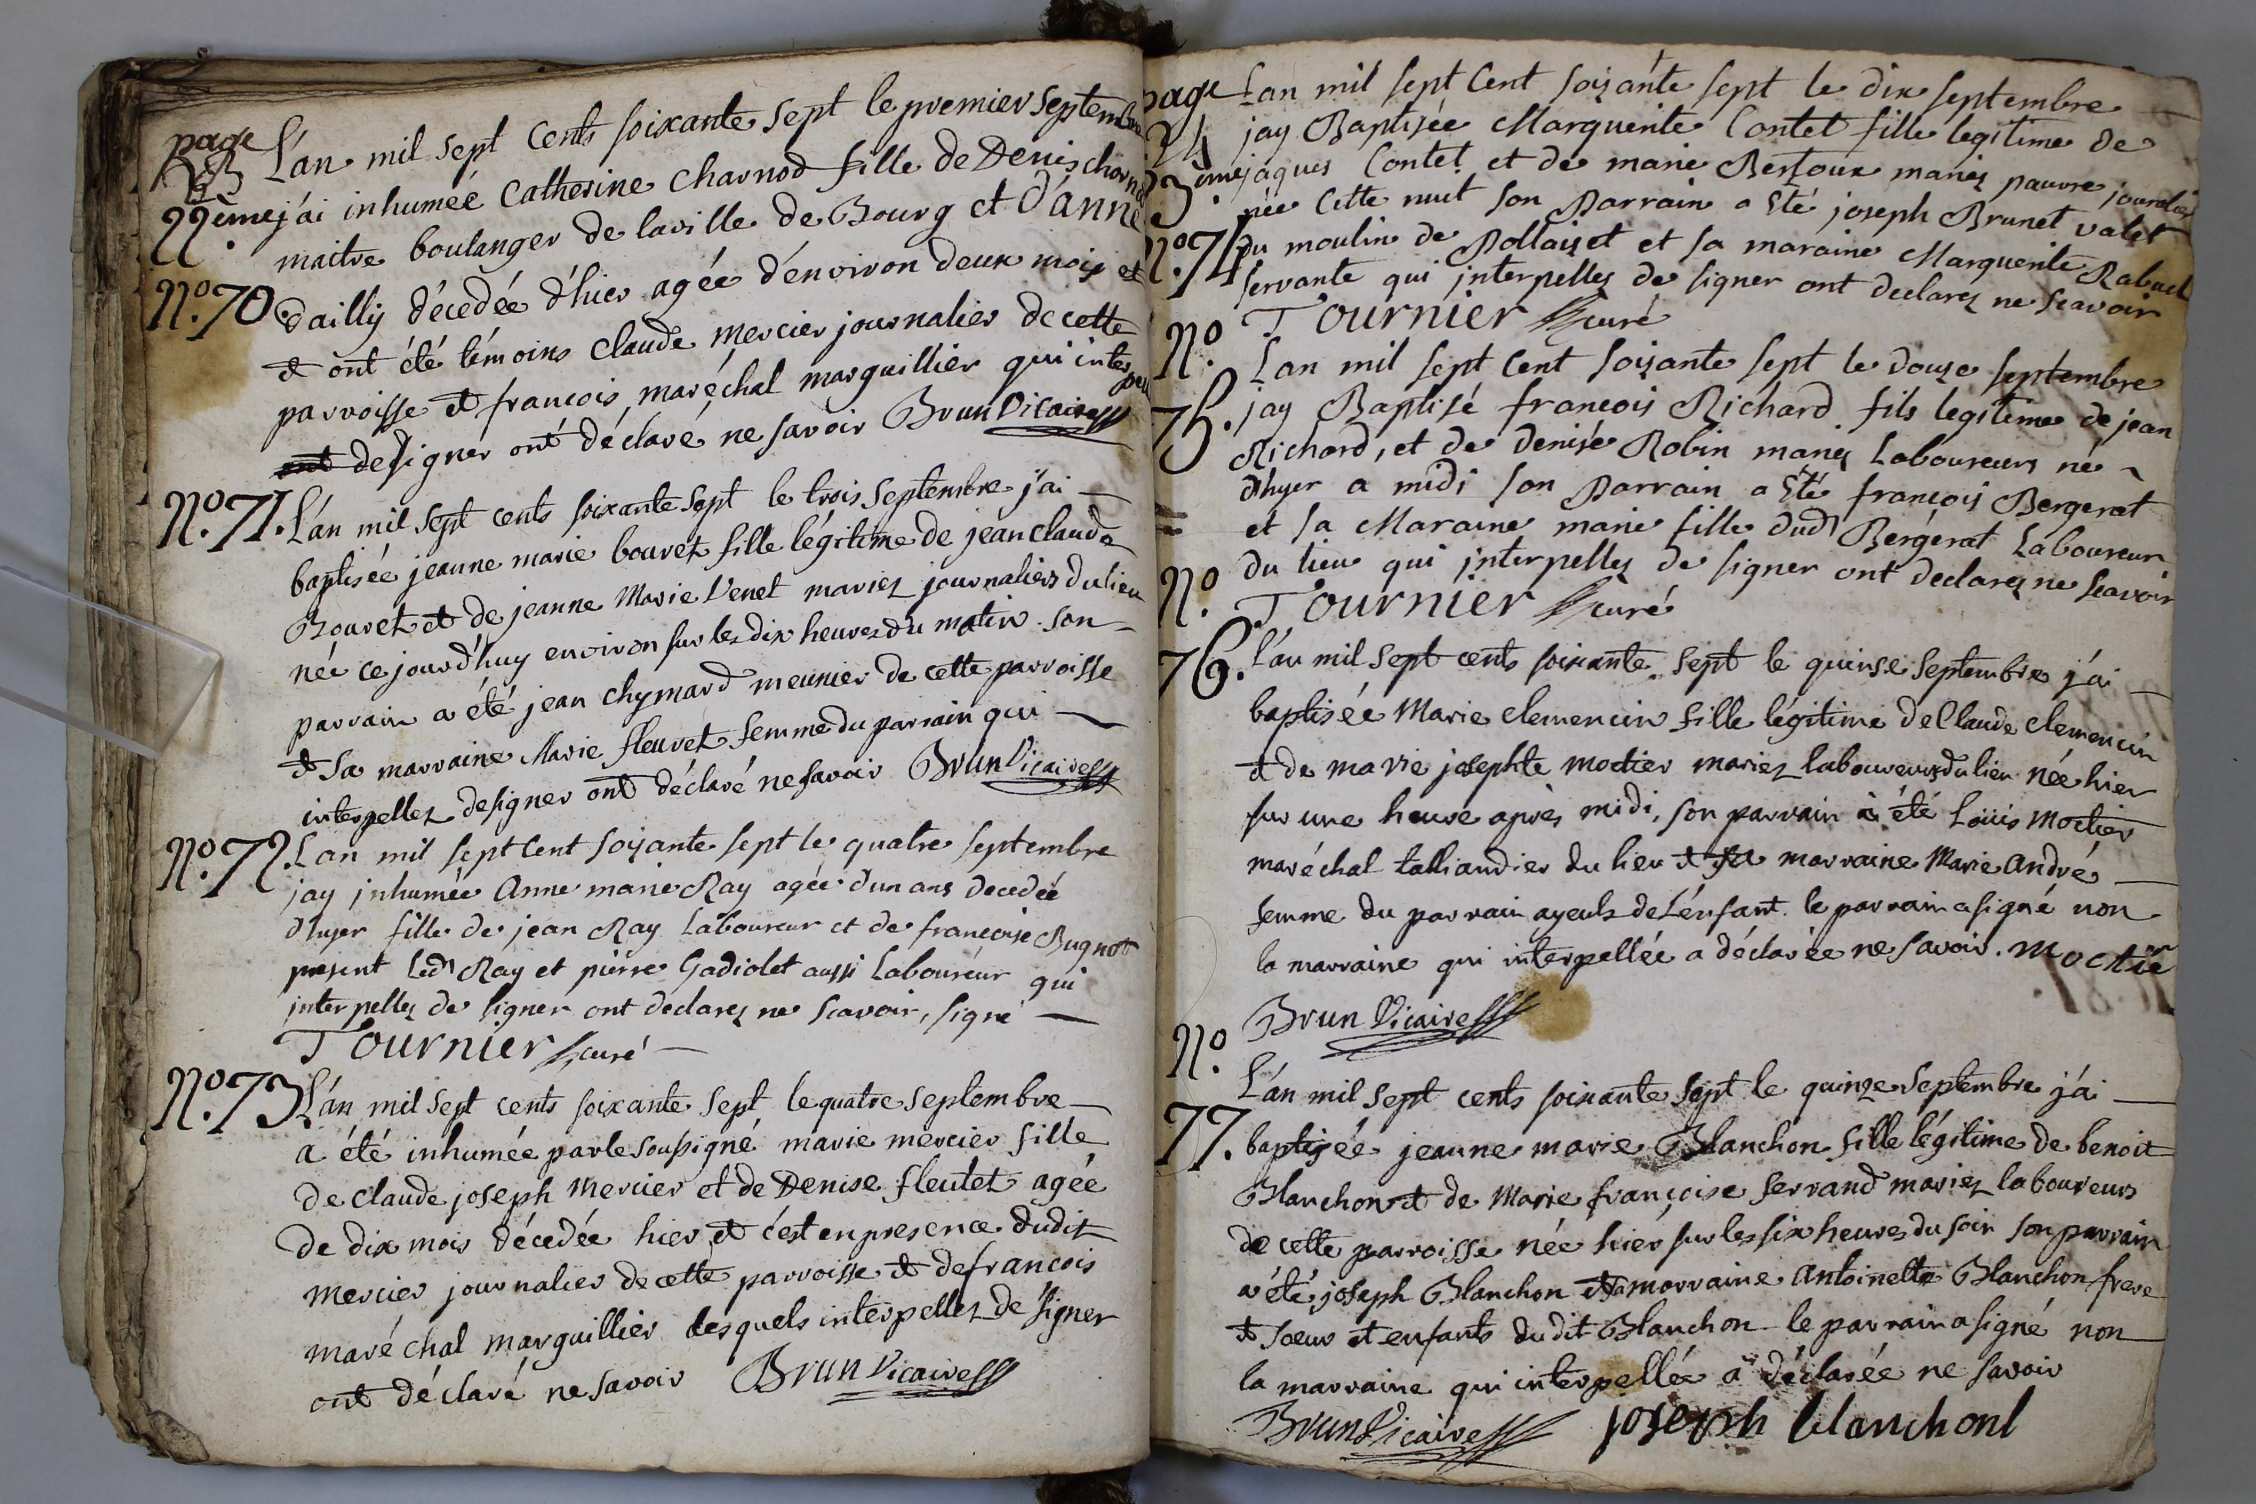 page
23
22ème
L'an mil sept cents soixante sept le premier septembre
j'ai inhumée Catherine Charnod fille de Denis charnod
maitre boulanger de la ville de Bourg et d'anne
No. 70.
dailly décédée d'hier agée d'environ deux mois et
et ont été témoins claude mercier journalier de cette
parroisse et françois maréchal marguillier qui interpell
de signer ont déclaré ne savoir Brun Vicaire
No. 71.
L'an mil sept cents soixante sept le trois septembre j'ai
baptisée jeanne marie bouvet fille légitime de jean claude
Bouvet et de jeanne Marie Venet mariez journaliers du lieu
née ce jourd'huy environ sur les dix heures du matin. son
parrain a été jean chymard meunier de cette parroisse
et sa marraine Marie fleuret femme du parrain qui
interpellez de signer ont déclaré ne savoir Brun Vicaire
No. 72.
L'an mil sept Cent soixante sept le quatre septembre
jay jnhumée Anne marie Ray agée d'un ans decedée
d'hyer fille de jean Ray Laboureur et de françoise Bugnot
present led. Ray et pierre Gadiolet aussi Laboureur qui
jnterpellez de signer ont declarez ne scavoir, signé
Tournier curé
No. 73
L'an mil sept cents soixante sept le quatre septembre
a été inhumée par le soussigné marie mercier fille
de claude joseph Mercier et de Denise fleutet agée
de dix mois décedée hier et c'est en presence dudit
mercier journalier de cette parroisse et de francois
maréchal marguillier lesquels interpellez de signer
ont déclaré ne savoir Brun Vicaire
page
24
23ème
Lan mil sept Cent soixante sept le dix septembre
jay Baptisée Marguerite Contet fille legitime de
jaques Contet et de marie Bertoux mariez pauvre journalier
née Cette nuit son Parrain a Eté joseph Brunet valet
No. 74
du moulin de Rollaizet et sa maraine Marguerite Rabuel
servante qui jnterpellez de signer ont declarez ne scavoir
Tournier curé
No. 75.
Lan mil sept Cent soixante sept le douze septembre
jay Baptisé francois Richard fils legitime de jean
Richard, et de denise Robin mariez Laboureurs né
d'hyer a midi son Parrain a Eté françois Bergerat
et sa Maraine marie fille dud. Bergerat Laboureur
du lieu qui jnterpellez de signer ont declarez ne scavoir
Tournier curé
No. 76.
L'an mil sept cents soixante sept le quinse septembre j'ai
baptisée Marie clemencin fille légitime de Claude clemencin
et de marie josephte moctier mariez laboureurs du lieu née hier
sur une heure après midi, son parrain a été Loüis moctier
maréchal talliandier du lieu et sa marraine Marie andré
femme du parrain ayeuls de l'enfant. le parrain a signé non
la marraine qui interpellée a déclarée ne savoir. moctié
Brun Vicaire
No. 77.
L'an mil sept cents soixante sept le quinze septembre j'ai
baptisée jeanne marie Blanchon fille légitime de benoit
Blanchon et de Marie françoise ferrand mariez laboureurs
de cette parroisse née hier sur les six heures du soir son parrain
a été joseph Blanchon et sa marraine antoinette Blanchon frere
et soeur et enfants du dit Blanchon le parrain a signé non
la marraine qui interpellée a déclarée ne savoir
Brun Vicaire joseph blanchonl